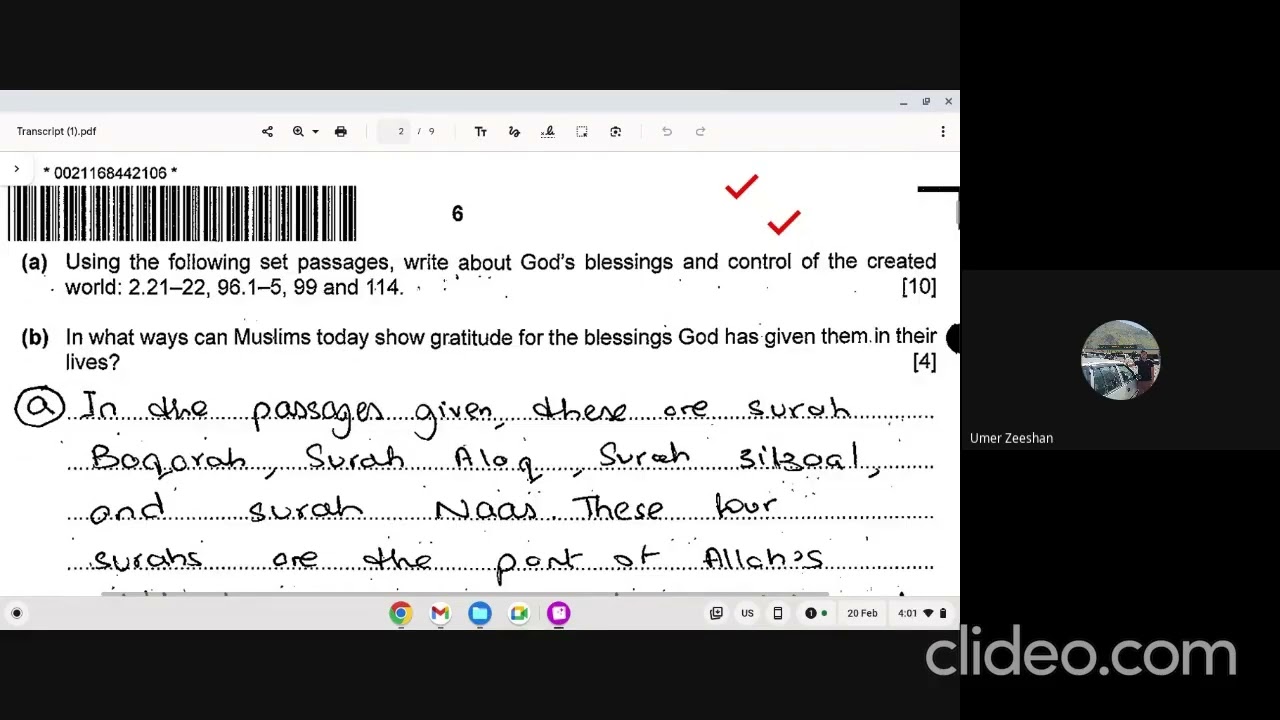 Transcript (1).pdf
2 / 9
* 0021168442106 *
6
(a) Using the following set passages, write about God's blessings and control of the created
world: 2.21–22, 96.1–5, 99 and 114. [10]
(b) In what ways can Muslims today show gratitude for the blessings God has given them in their
lives? [4]
(a) In the passages given, these are surah
Baqarah, Surah Alaq, Surah Zilzaal,
and surah Naas. These four
surahs are the part of Allah's
Umer Zeeshan
US
1
20 Feb
4:01
clideo.com